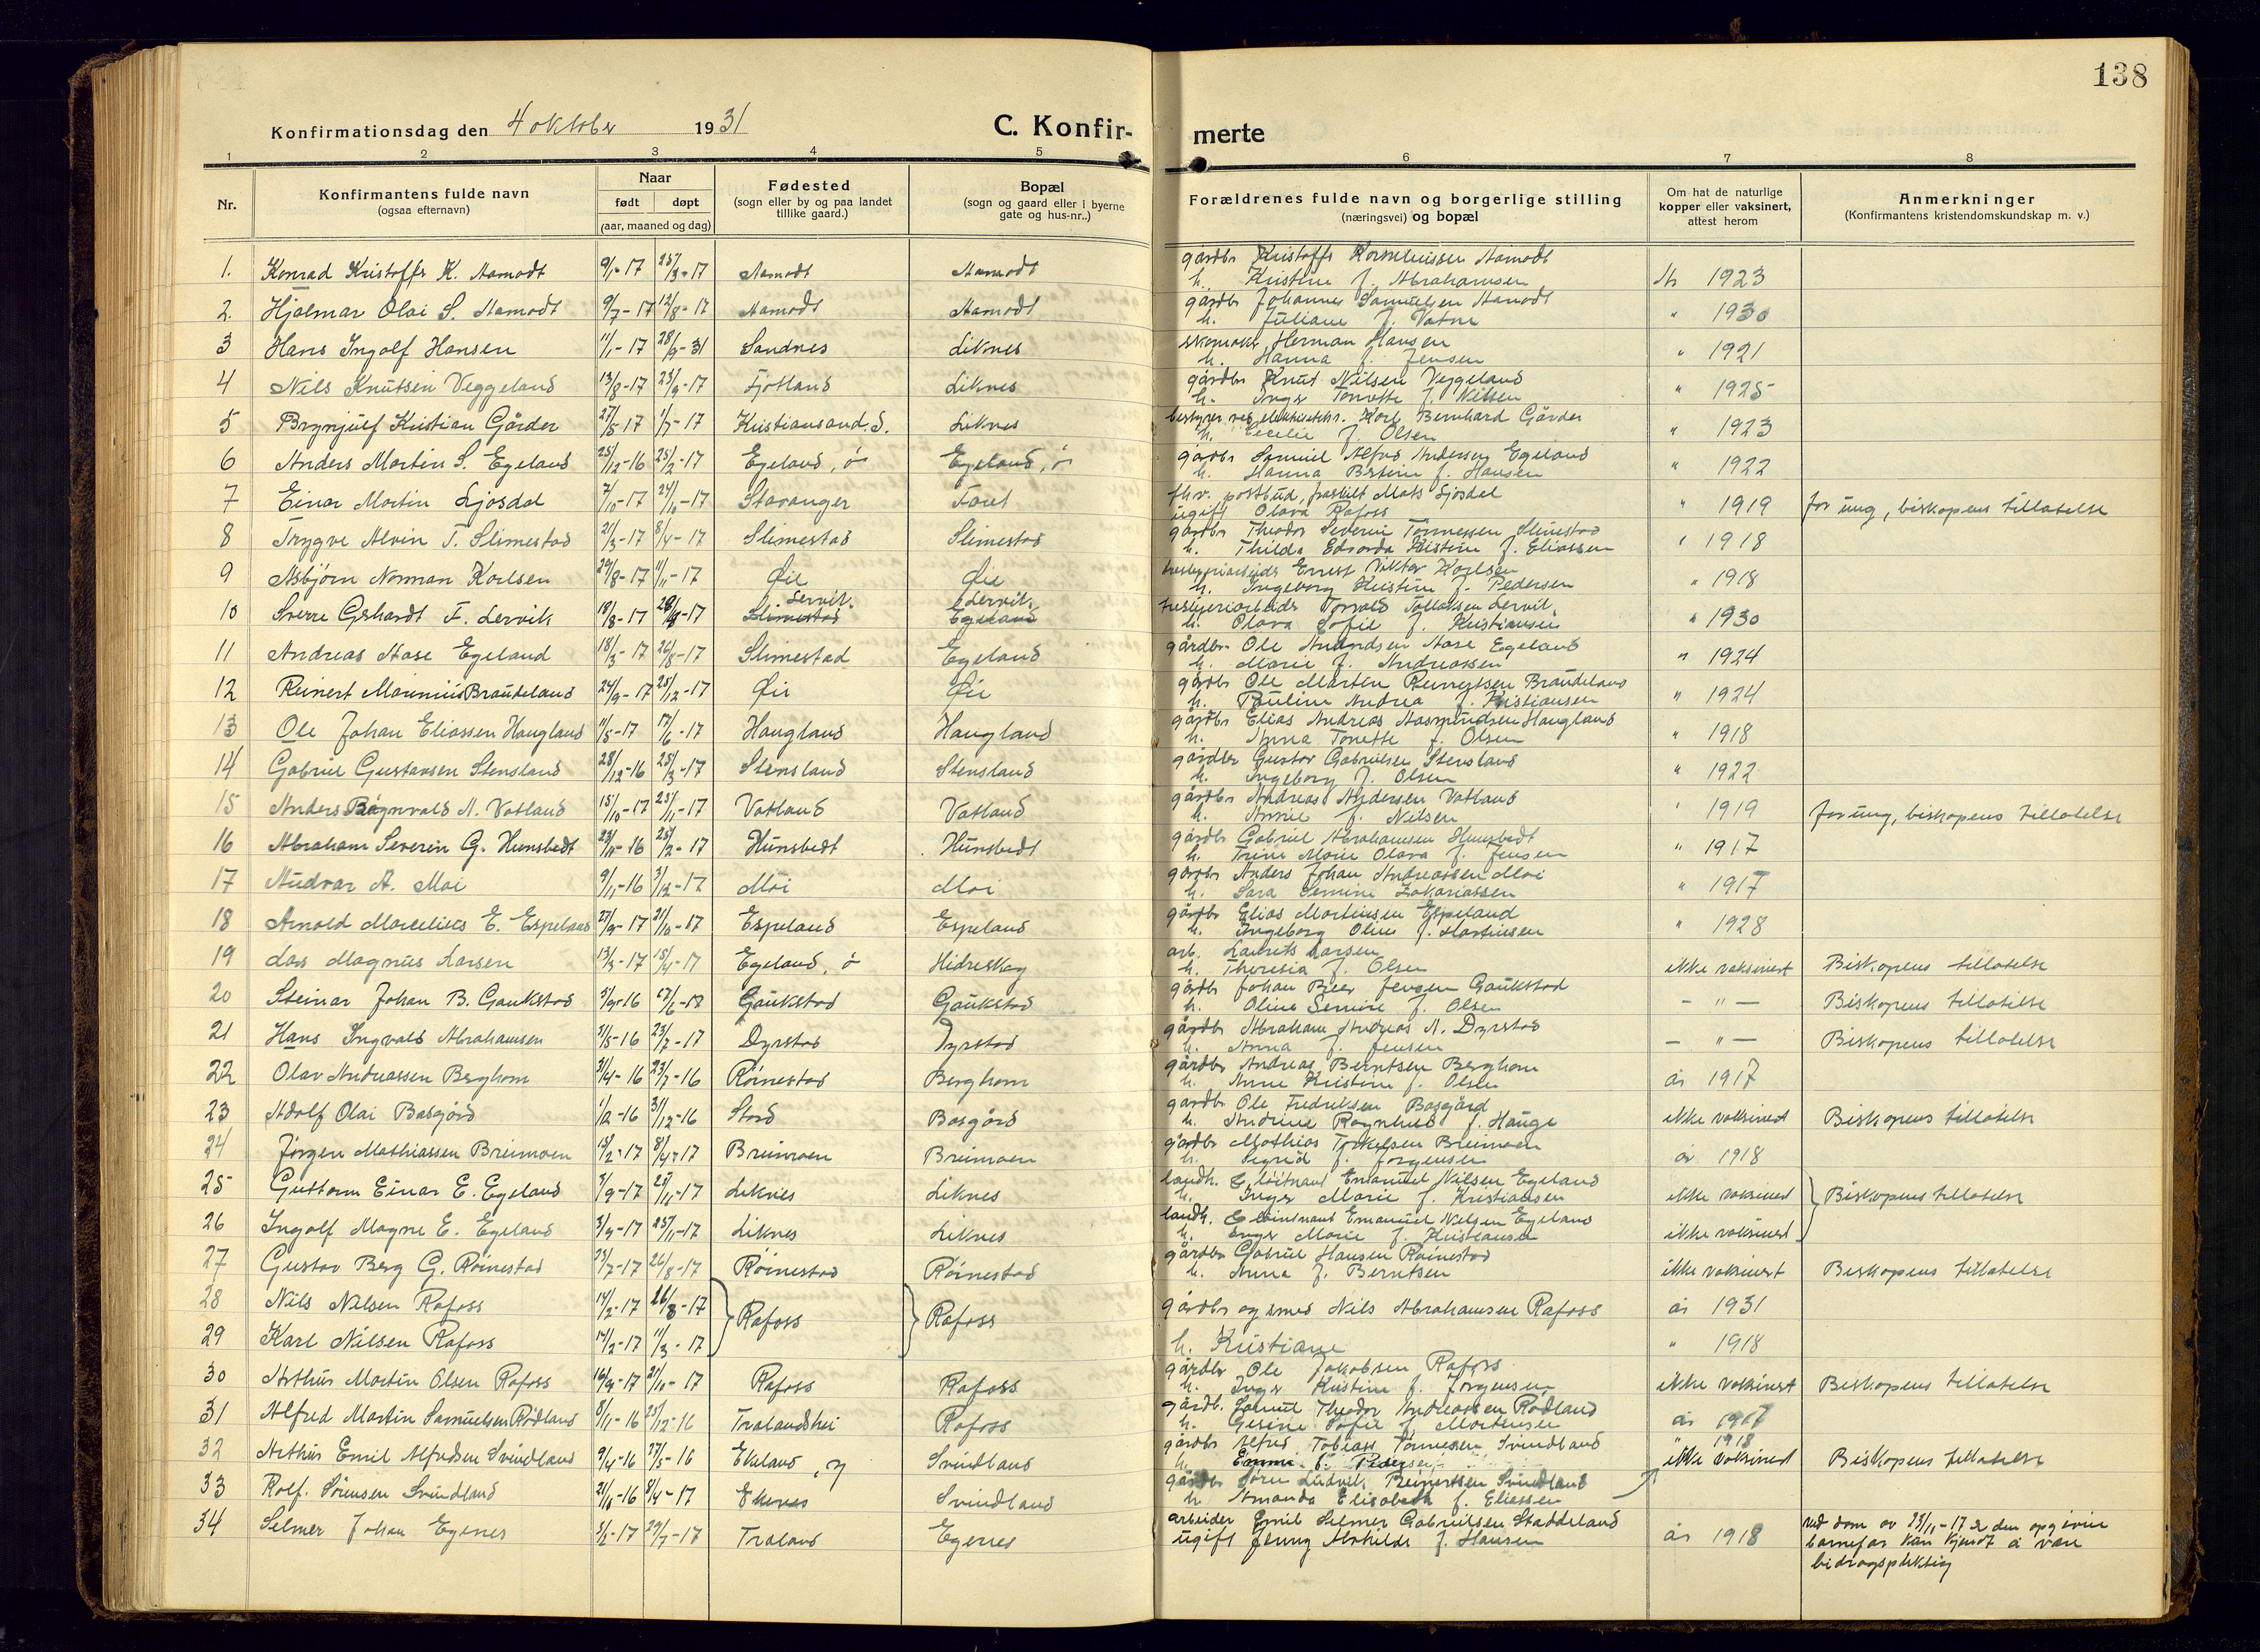 138
Konfirmationsdag den 4 oktober 1931
C. Konfir-
merte
1 2 3 4 5 6 7 8
Nr.
Konfirmantens fulde navn
(ogsaa efternavn)
Naar
født døpt
(aar, maaned og dag)
Fødested
(sogn eller by og paa landet
tillike gaard.)
Bopæl
(sogn og gaard eller i byerne
gate og hus-nr..)
Forældrenes fulde navn og borgerlige stilling
(næringsvei) og bopæl
Om hat de naturlige
kopper eller vaksinert,
attest herom
Anmerkninger
(Konfirmantens kristendomskundskap m. v.)
1. Konrad Kristoffs K. Aamodt 9/1-17 25/3-17 Aamodt Aamodt
gårdbr Kristoffs Korneliussen Aamodt
h. Kristine f. Abrahamsen år 1923
2. Hjalmar Olai S. Aamodt 9/7-17 12/8-17 Aamodt Aamodt
gårdbr Johannes Samuelsen Aamodt
h. Juliane f. Vatne " 1930
3 Hans Ingolf Hansen 11/1-17 28/9-31 Sandnes Liknes
skomaker Herman Hansen
h. Hanna f. Jensen " 1921
4 Nils Knutsen Veggeland 13/8-17 23/9-17 Fjotland Liknes
gårdbr Knut Nilsen Veggeland
h. Inger Tonette f. Nilsen " 1925
5 Brynjulf Kristian Gårder 27/5-17 1/7-17 Kristiansand. S. Liknes
bestyrer ved elektricitetsv. Karl Bernhard Gårder
h. Cecilie f. Olsen " 1923
6 Anders Martin S. Egeland 25/12-16 25/2-17 Egeland, ö Egeland, ö
gårdbr Samuel Alfred Andersen Egeland
h. Hanna Bertine f. Hansen " 1922
7 Einar Martin Ljosdal 7/10-17 24/10-17 Stavanger Faret
fhv. postbud, fraskilt Mats Ljosdal
ugift Olava Rafoss " 1919 for ung, biskopens tillatelse
8 Trygve Alvin T. Slimestad 21/3-17 8/4-17 Slimestad Slimestad
gårdbr Theodor Severin Tönnessen Slimestad
h. Thilda Edvarda Kristine f. Eliassen " 1918
9 Asbjörn Norman Karlsen 29/8-17 11/11-17 Öie Öie
tresliperiarbeider Ernst Viktor Karlsen
h. Ingeborg Kristine f. Pedersen " 1918
10 Sverre Gerhardt T. Lervik 18/3-17 28/8-17 Slimestad Lervik. Egeland Lervik.
tresliperiarbeider Torvald Tollaksen Lervik.
h. Olava Sofie f. Kristiansen " 1930
11 Andreas Aase Egeland 18/3-17 26/8-17 Slimestad Egeland
gårdbr. Ole Amandsen Aase Egeland
h. Marie f. Andreassen " 1924
12 Reinert Marinius Braudeland 24/9-17 25/12-17 Öie Öie
gårdbr Ole Martin Reinertsen Braudeland
h. Pauline Andrea f. Kristiansen " 1924
13 Ole Johan Eliassen Haugland 11/5-17 17/6-17 Haugland Haugland
gårdbr Elias Andreas Aasmundsen Haugland
h. Anna Tonette f. Olsen " 1918
14 Gabriel Gustavsen Stensland 28/12-16 25/3-17 Stensland Stensland
gårdbr Gustav Gabrielsen Stensland
h. Ingeborg f. Olsen " 1922
15 Anders Ragnvald A. Vatland 15/10-17 25/11-17 Vatland Vatland
gårdbr Andreas Andersen Vatland
h. Amie f. Nilsen " 1919 for ung, biskopens tillatelse
16 Abraham Severin G. Hunsbedt 23/11-16 25/2-17 Hunsbedt Hunsbedt
gårdbr Gabriel Abrahamsen Hunsbedt
h. Trine Marie Olava f. Jensen " 1917
17 Audvar A. Moi 9/11-16 3/12-17 Moi Moi
gårdbr Anders Johan Andreassen Moi
h. Sara Semine Zakariassen " 1917
18 Arnold Marcelius E. Espeland 27/9-17 21/10-17 Espeland Espeland
gårdbr Elias Martinsen Espeland
h. Ingeborg Oline f. Martinsen " 1928
19 Lars Magnus Larsen 13/3-17 15/4-17 Egeland, ö Hidreskog
arb. Laurits Larsen
h. Theresia f. Olsen ikke vaksinert Biskopens tillatelse
20 Steinar Johan B. Gaukstad 5/9-16 17/6-17 Gaukstad Gaukstad
gårdbr Johan Beer Jensen Gaukstad
h. Oline Semine f. Olsen - " - Biskopens tillatelse
21 Hans Ingvald Abrahamsen 3/5-16 23/7-17 Dyrstad Dyrstad
gårdbr Abraham Andreas A. Dyrstad
h. Anna f. Jensen - " - Biskopens tillatelse
22 Olav Andreassen Berghom 31/4-16 23/7-16 Röinestad Berghom
gårdbr Andreas Berntsen Berghom
h. Anne Kristine f. Olsen år 1917
23 Adolf Olai Basgård 1/12-16 31/12-16 Stord Basgård
gårdbr Ole Fredriksen Basgård
h. Andrine Ragnhild f. Hauge ikke vaksinert Biskopens tillatelse
24 Jörgen Mathiassen Breimoen 15/2-17 8/4-17 Breimoen Breimoen
gårdbr Mathias Torkelsen Breimoen
h. Sigrid f. Jörgensen år 1918
25 Guttorm Einar E. Egeland 3/9-17 25/11-17 Liknes Liknes
landh. & löitnant Emanuel Nilsen Egeland
h. Inger Marie f. Kristiansen ikke vaksinert Biskopens tillatelse
26 Ingolf Magne E. Egeland 3/9-17 25/11-17 Liknes Liknes
landh. & löitnant Emanuel Nilsen Egeland
h. Inger Marie f. Kristiansen ikke vaksinert
27 Gustav Berg G. Röinestad 23/7-17 26/8-17 Röinestad Röinestad
gårdbr Gabriel Hansen Röinestad
h. Anna f. Berntsen ikke vaksinert Biskopens tillatelse
28 Nils Nilsen Rafoss 14/2-17 26/8-17 Rafoss Rafoss
gårdbr og smed Nils Abrahamsen Rafoss år 1931
29 Karl Nilsen Rafoss 14/2-17 11/3-17
h. Kristiane " 1918
30 Arthur Martin Olsen Rafoss 16/9-17 21/10-17 Rafoss Rafoss
gårdbr Ole Jakobsen Rafoss
h. Inger Kristine f. Jörgensen ikke vaksinert Biskopens tillatelse
31 Alfred Martin Samuelsen Rödland 8/11-16 25/12-16 Tralandshei Rafoss
gårdb. Samuel Theodor Andreassen Rödland
h. Gesine Sofie f. Mortensen år 1917
32 Arthur Emil Alfredsen Svindland 9/4-16 27/5-16 Ekeland, y Svindland
gårdbr Alfred Tobias Tönnesen Svindland " 1918
h. Emma f. Pedersen ikke vaksinert Biskopens tillatelse
33 Rolf. Sörensen Svindland 21/11-16 8/4-17 Ekenes Svindland
gårdbr Sören Ludvik Reinertsen Svindland
h. Amanda Elisabeth f. Eliassen
34 Selmer Johan Egenes 3/2-17 29/7-17 Traland Egenes
arbeider Emil Selmer Gabrielsen Staddeland
ugift Jenny Mathilde f. Hansen år 1918
ved dom av 23/11-17 er den opgivne
barnefar kun kjendt å være
bidragspliktig